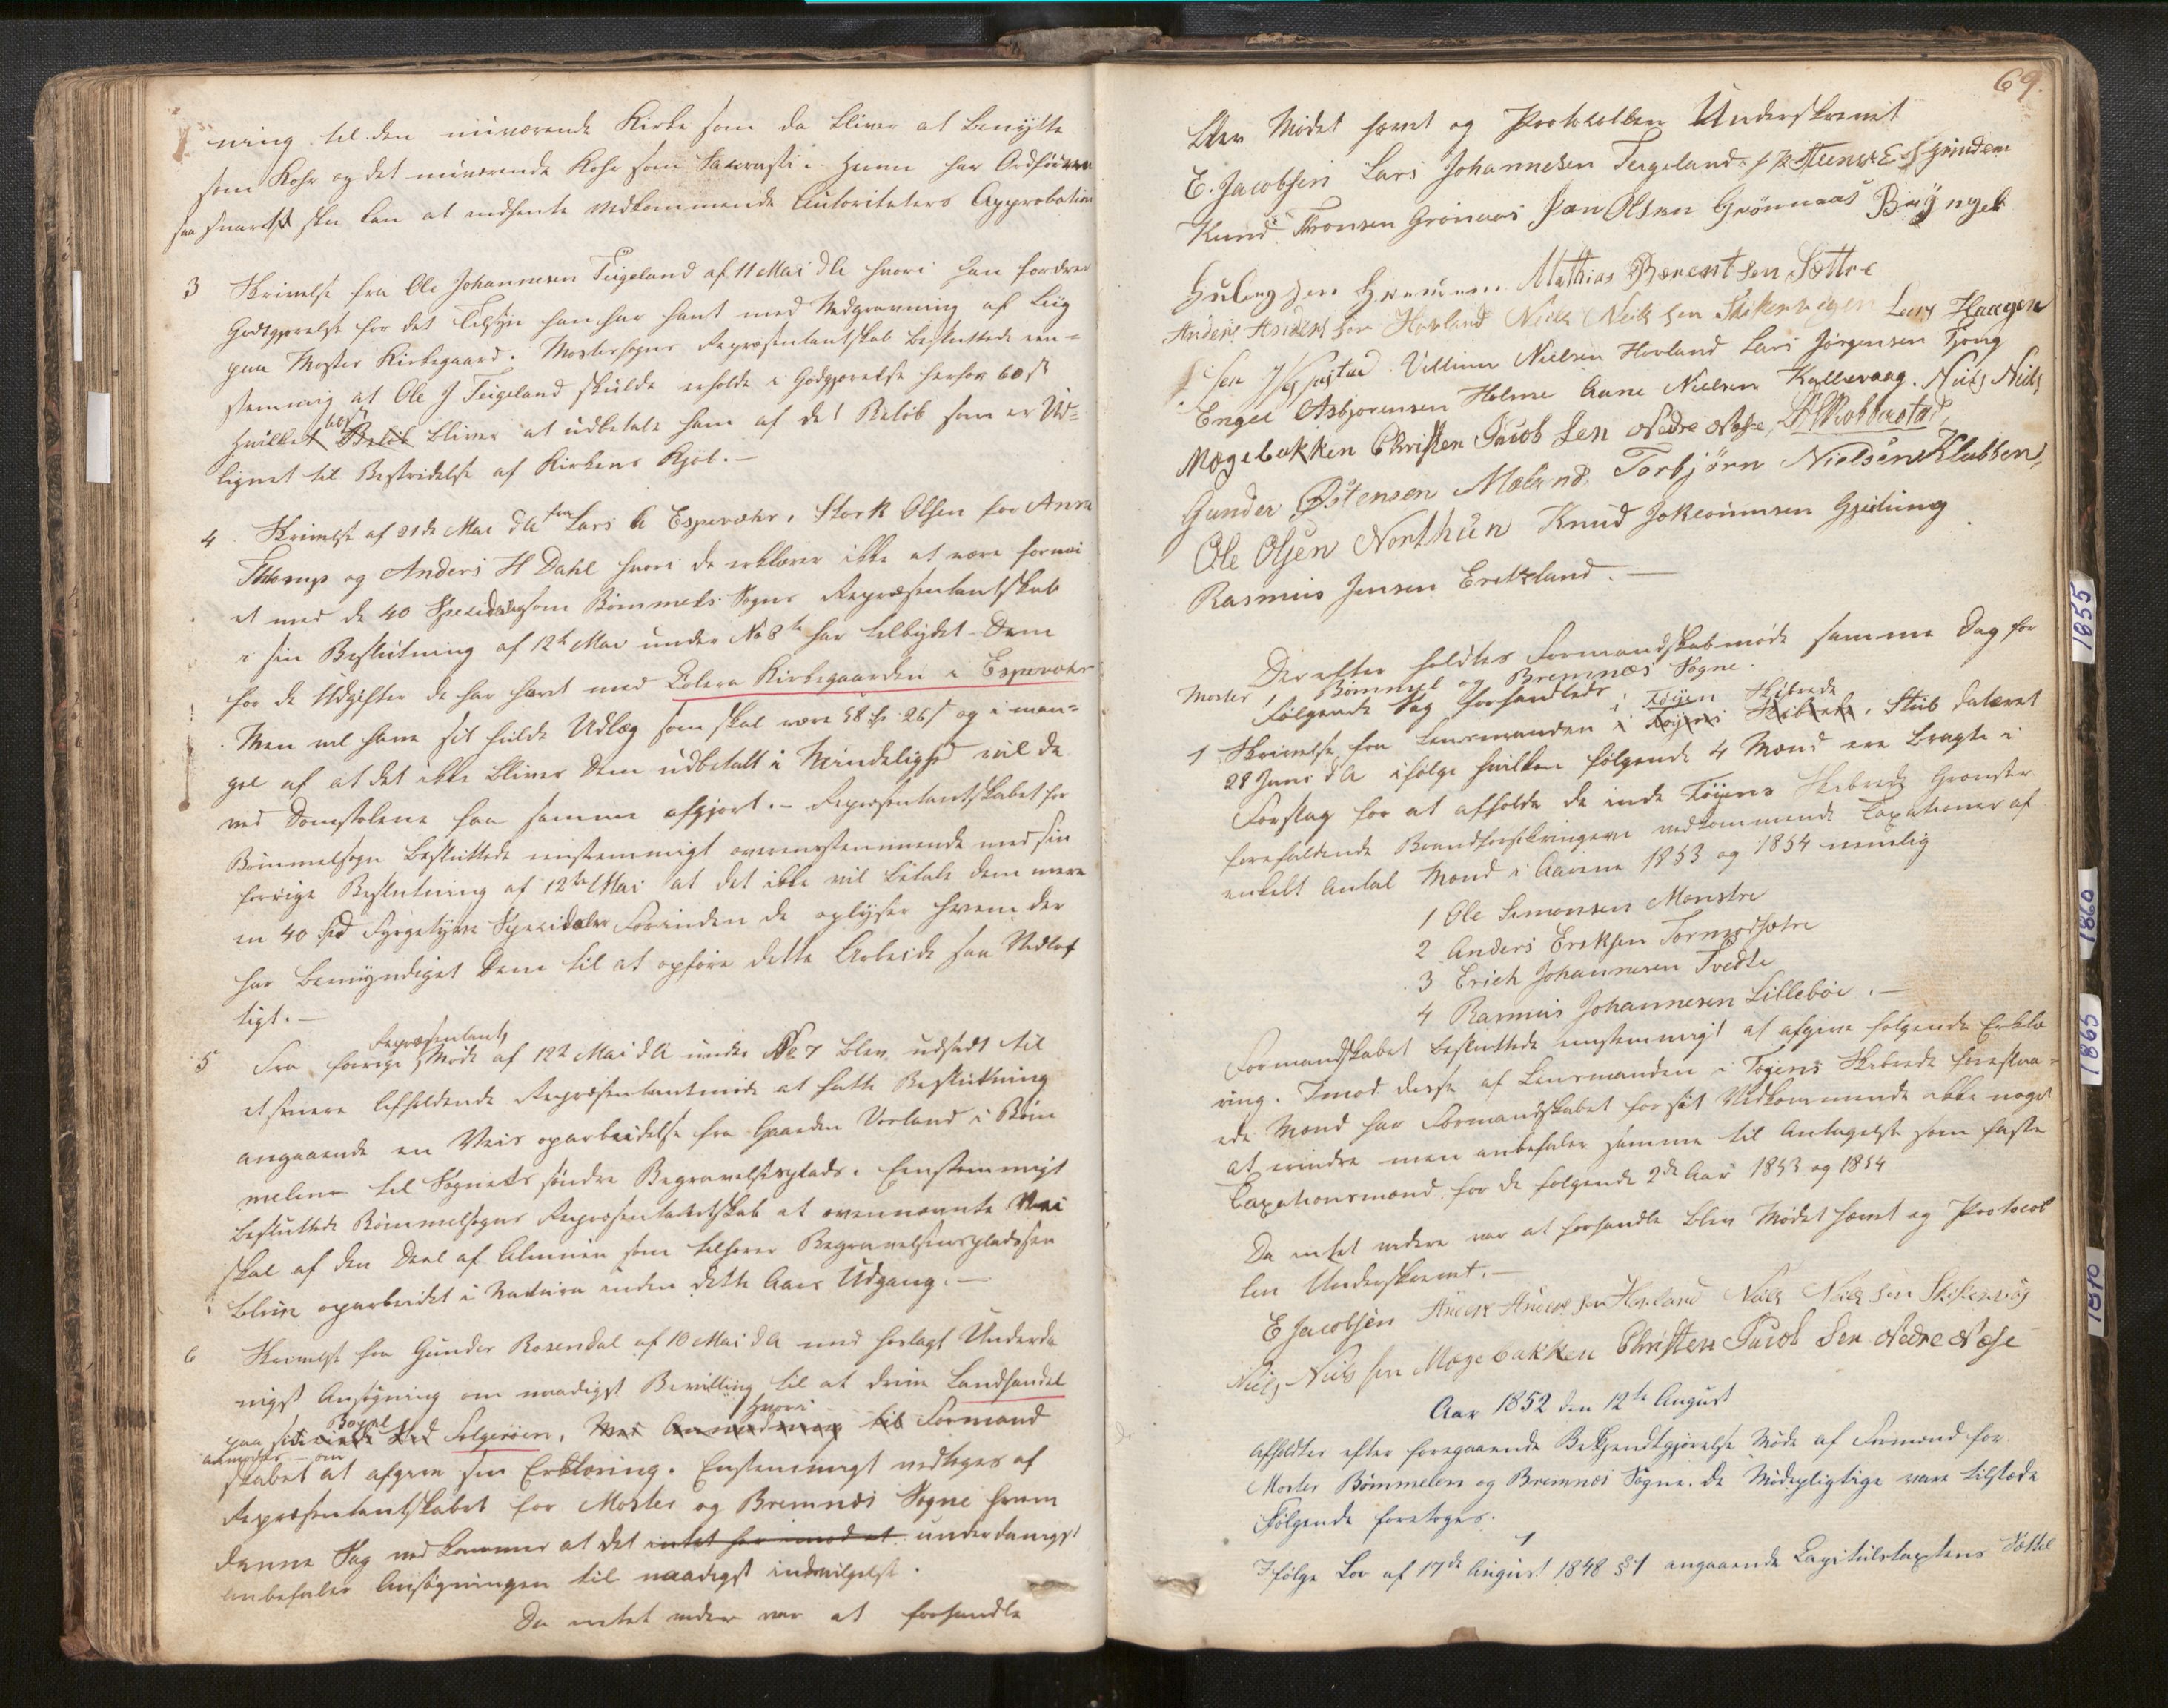 ning til den nuværende Kirke som da bliver at benytte
som Kohr og det nuværende Kohr som Sacrasti. Herom har Ordføreren
saa snart skee kan at indhente vedkommende Autoriteters Approbation
3 Skrivelse fra Ole Johannesen Teigeland af 11 Mai d A hvori han fordrer
Godtgjørelse for det Tilsyn han har havt med Nedgravning af Liig
paa Moster Kirkegaard. Mostersogns Repræsentantskab besluttede een-
stemmig at Ole J Teigeland skulde erholde i Godgjørelse herfor 60 s
hvilket Beløb bliver at udbetale ham af det Beløb som er Ud-
lignet til Bestridelse af Kirkens Kjøb. –
4 Skrivelse af 21de Mai d A fra Lars A Espevæhr, Stork Olsen for Anna
og Anders H Dahl hvori de erklærer ikke at være fornøi
et med de 40 Speciedaler som Bømmels Sogns Repræsentantskab
i sin Beslutning af 12te Mai under No 8 har tilbydet Dem
for de Udgifter de har havt med Colera Kirkegaarden i Espevæhr
Men vil have sit fulde Udlæg som skal være 58 26 s og i man-
gel af at det ikke bliver Dem udbetalt i Mindelighed vil de
ved Domstolene faa samme afgjort. – Repræsentantskabet for
Bømmelsogn besluttede eenstemmigt overensstemmende med sin
forrige Beslutning af 12te Mai at det ikke vil betale dem mere
en 40 Spd Fyrgetyve Speciedaler Forinden de oplyser hvem der
har bemyndiget Dem til at opføre dette Arbeide saa Vidløf
tigt. –
Repræsentant
5 Fra forrige Møde af 12te Mai d A under No 7 blev udsadt til
et senere afholdende Repræsentantmøde at fatte Beslutning
angaaende en Veis oparbeidelse fra Gaarden Vorland i Bøm
melen til Sognets søndre Begravelsesplads. Eenstemmigt
besluttede Bømmelsogns Repræsentantskab at ovennævnte Vei
skal af den Deel af Almuen som tilhører Begravelsespladsen
blive oparbeidet i Natura inden dette Aars Udgang. –
6 Skrivelse fra Gunder Rosendal af 10 Mai d A med forlagt Underda
nigst Ansøgning om naadigst Bevilling til at drive Landhandel
paa sit Bopæl Folgerøen, hvori Formand
skabet anmodes om at afgive sin Erklæring. Enstemmigt vedtoges af
Repræsentantskabet for Moster og Bremnæs Sogne hvem
denne Sag ved kommer at det intet har imod at underdanigst
anbefaler Ansøgningen til naadigst indvilgelse.
Da intet videre var at forhandle
69.
blev Mødet hævet og Protocollen Underskrevet
E. Jacobsen Lars Johannesen Teigeland
Knud Tronsen Grønaas Jan Olsen Grønnaas Brynyel
Mathias Bærentsen Sættre
Anders Andersen Hovland Niels Nielssen Skikenvigen Lars Haagen
sen Villum Nielsen Hovland Lars Jørgensen Fjong
Engel Asbjørensen Holme Aane Nielsen Kallevaag. Niels Niels
Mogebakken Christen Jacob Sen Nedre Næsse,
Gunder Østensen Mæland, Torbjørn Nielsen Klubben,
Ole Olsen Northun Knud Gjeitung
Rasmus Jensen Eritzland. –
Derefter holdtes Formandskabmøde samme Dag for
Moster, Bømmel og Bremnæs Sogne.
følgende Sag forhandledes:
1 Skrivelse fra Lensmanden i Føyen Skibrede, Stub dateret
28 Juni d A ifølge hvilken følgende 4 Mænd ere bragte i
Forslag for at afholde de inde Føyens Skibreds Grændser
forefaldende Brandforsikringerne vedkommende Taxationer af
enkelt Antal Mænd i Aarene 1853 og 1854 nemlig
1 Ole Simonsen Monstre
2 Anders Eriksen Tormodsætre
3 Erich Johannesen Tvedte
4 Rasmus Johannesen Lillebøe. –
Formandskabet besluttede eenstemmigt at afgive følgende Erklæ
ring. Imod disse af Lensmanden i Føyens Skibrede foreslaa-
ede Mænd har Formandskabet for sit Vedkommende ikke noget
at erindre men anbefaler samme til Antagelse som faste
Taxationsmænd for de følgende 2de Aar 1853 og 1854
Da intet videre var at forhandle blev Mødet hævet og Protocol
len Underskrevet. –
E Jacobsen Anders Andersen Hovland Niels Nielssen Skikenvig
Niels Nielssen Mogebakken Christen Jacob Sen Nedre Næsse
Aar 1852 den 12te August
afholdtes efter foregaaende Bekjendtgjørelse Møde af Formænd for
Moster Bømmelen og Bremnæs Sogne. De Mødepligtige vare tilstæde
Følgende foretoges.
1
Ifølge Lov af 17de August 1848 § 1 angaaende Capitulstaxtens Sættel
1855
1860
1865
1810